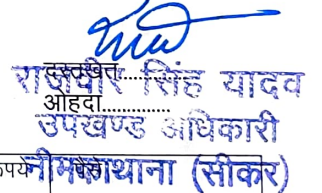 दस्तखत..........
राजवीर सिंह यादव
ओहदा.............
उपखण्ड अधिकारी
नीमकाथाना (सीकर)